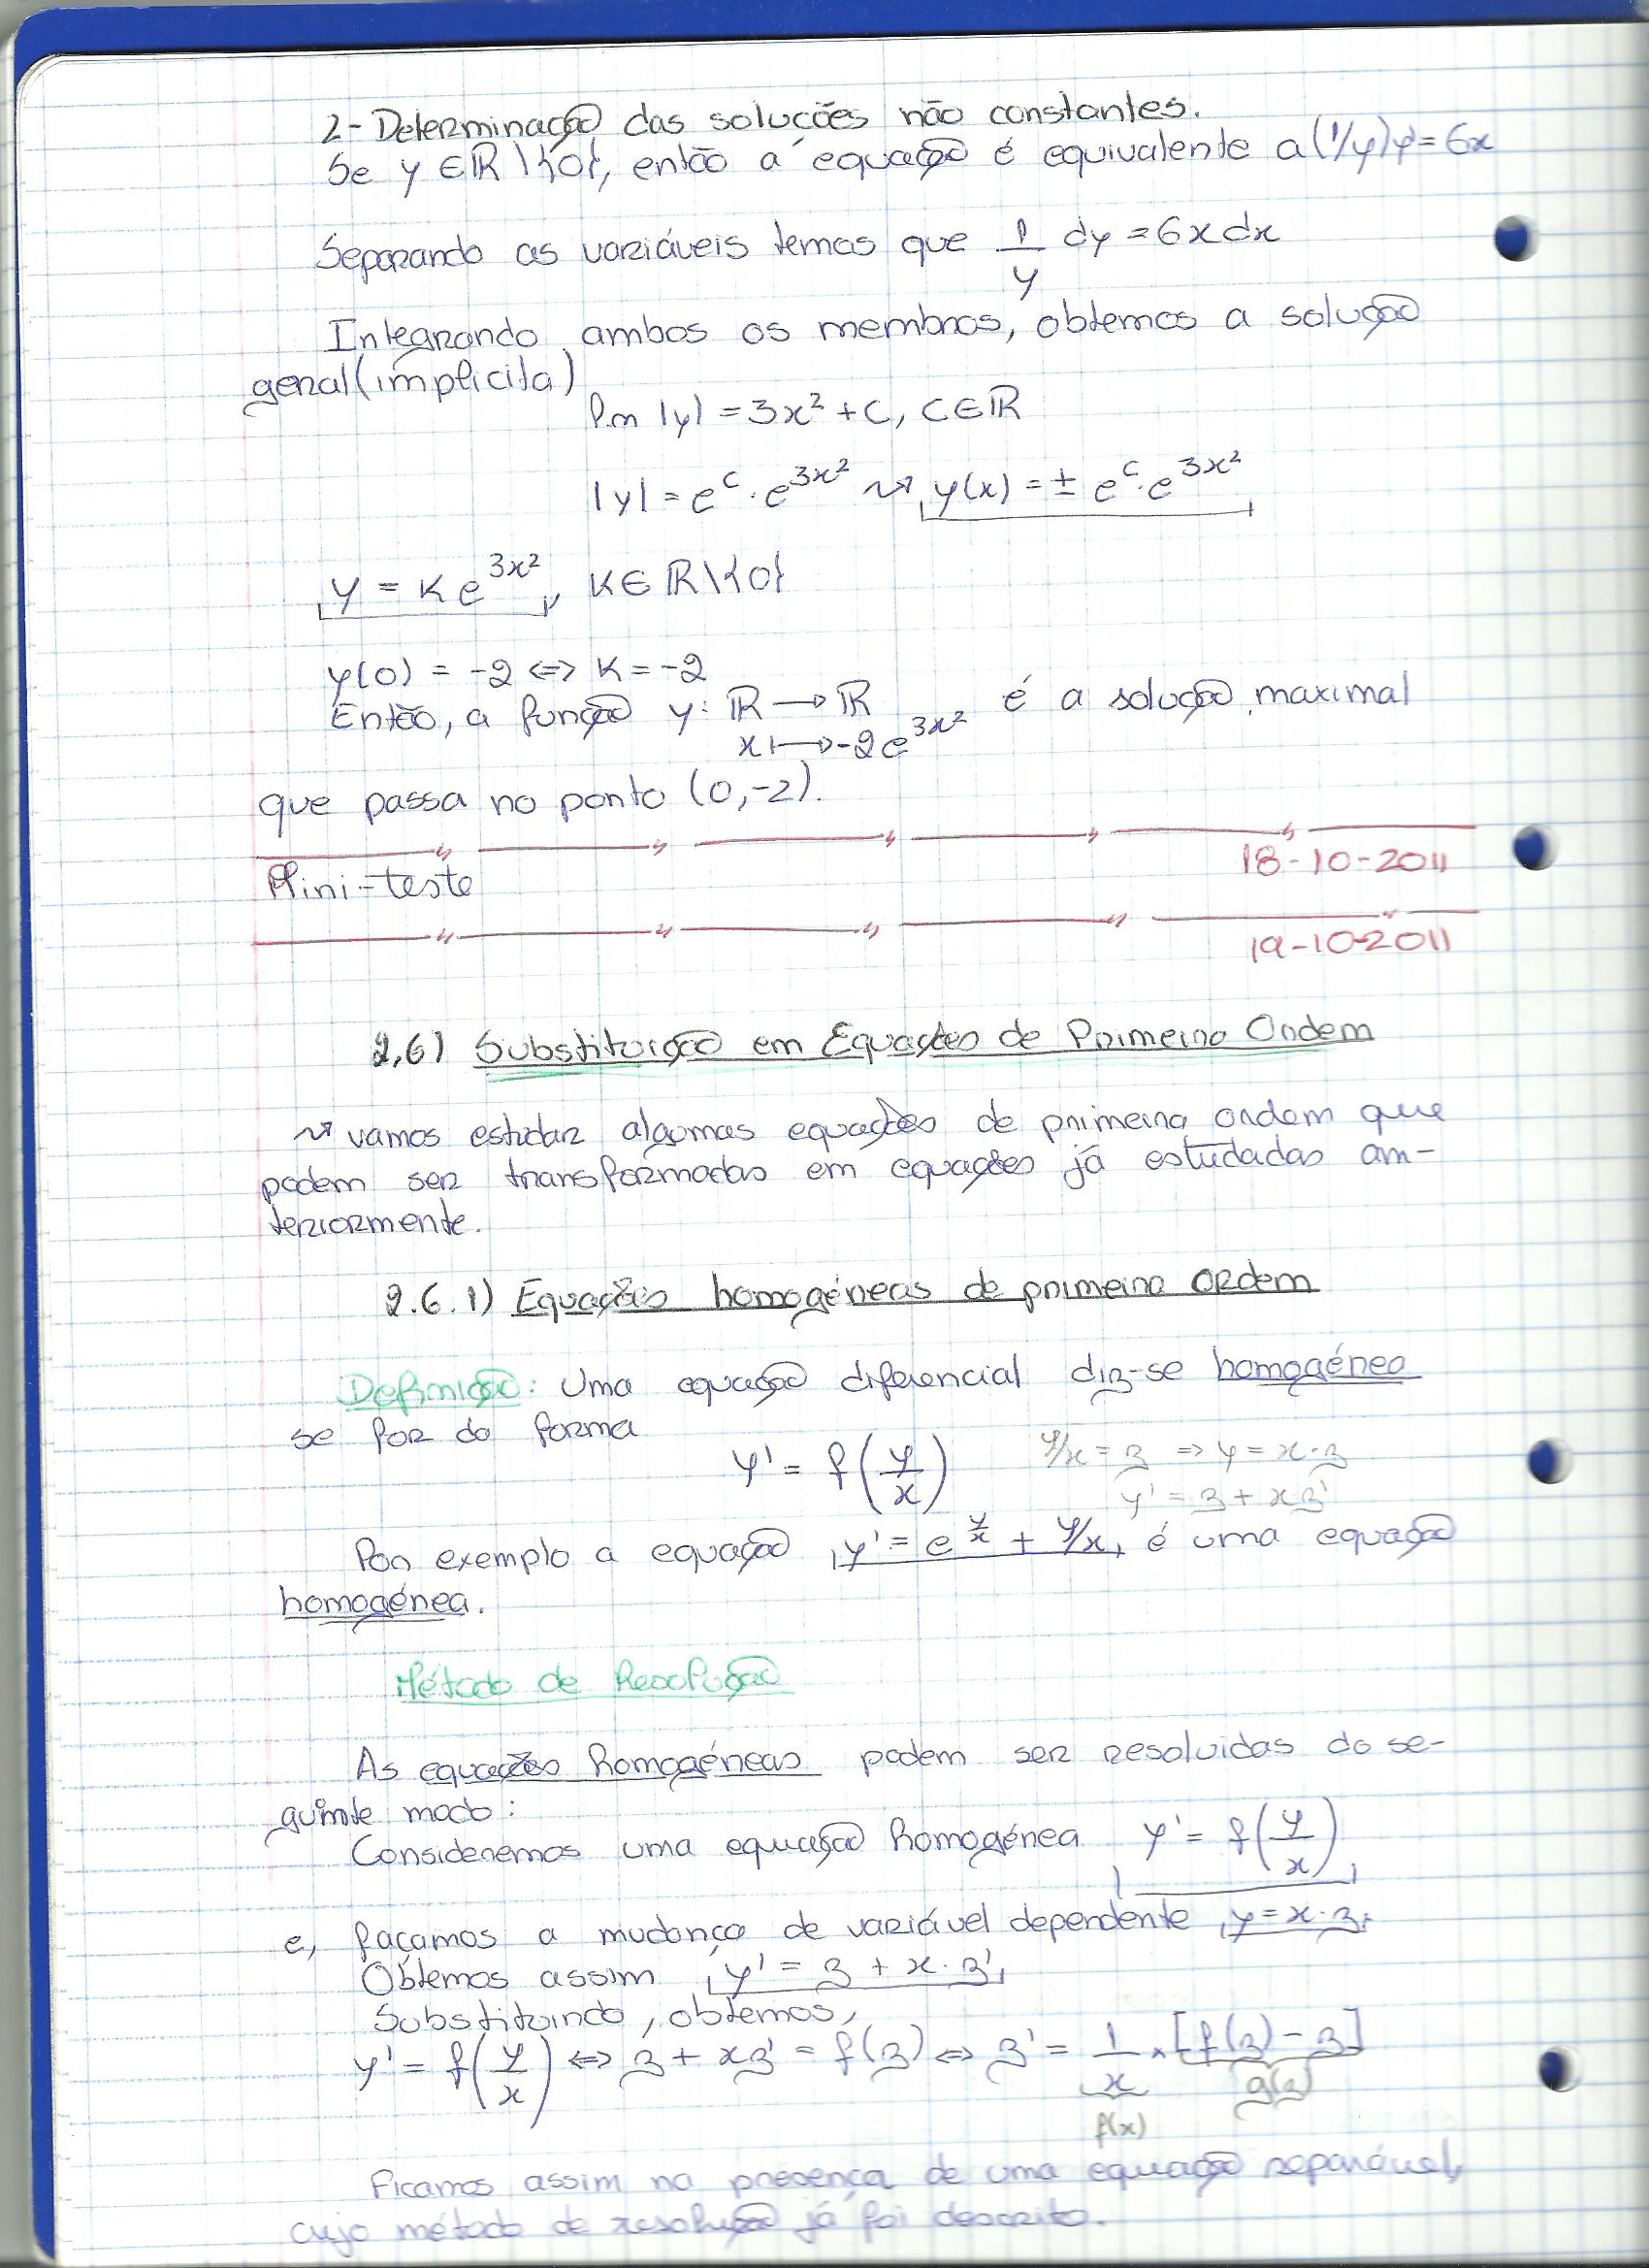 2- Determinação das soluções não constantes.
Se y ∈ ℝ\{0}, então a equação é equivalente a (1/y)y' = 6x
Separando as variáveis temos que 1/y dy = 6x dx
Integrando ambos os membros, obtemos a solução
geral (implicita)
ln |y| = 3x² + C, C ∈ ℝ
|y| = e^C · e^{3x²} ⇝ y(x) = ± e^C · e^{3x²}
y = K e^{3x²}, K ∈ ℝ\{0}
y(0) = -2 ⇔ K = -2
Então, a função y: ℝ → ℝ é a solução maximal
x ↦ -2e^{3x²}
que passa no ponto (0,-2).
18-10-2011
Mini-teste
19-10-2011
2.6) Substituição em Equações de Primeira Ordem
⇝ vamos estudar algumas equações de primeira ordem que
podem ser transformadas em equações já estudadas an-
teriormente.
2.6.1) Equações homogéneas de primeira ordem
Definição: Uma equação diferencial diz-se homogénea
se for da forma
y' = f(y/x) y/x = z ⇒ y = x·z
y' = z + xz'
Por exemplo a equação y' = e^{y/x} + y/x, é uma equação
homogénea.
Método de Resolução
As equações homogéneas podem ser resolvidas do se-
guinte modo:
Consideremos uma equação homogénea y' = f(y/x)
e, façamos a mudança de variável dependente y = x·z.
Obtemos assim y' = z + x·z'
Substituindo, obtemos,
y' = f(y/x) ⇔ z + xz' = f(z) ⇔ z' = 1/x × [f(z) - z]
f(x) g(z)
Ficamos assim na presença de uma equação separável,
cujo método de resolução já foi descrito.